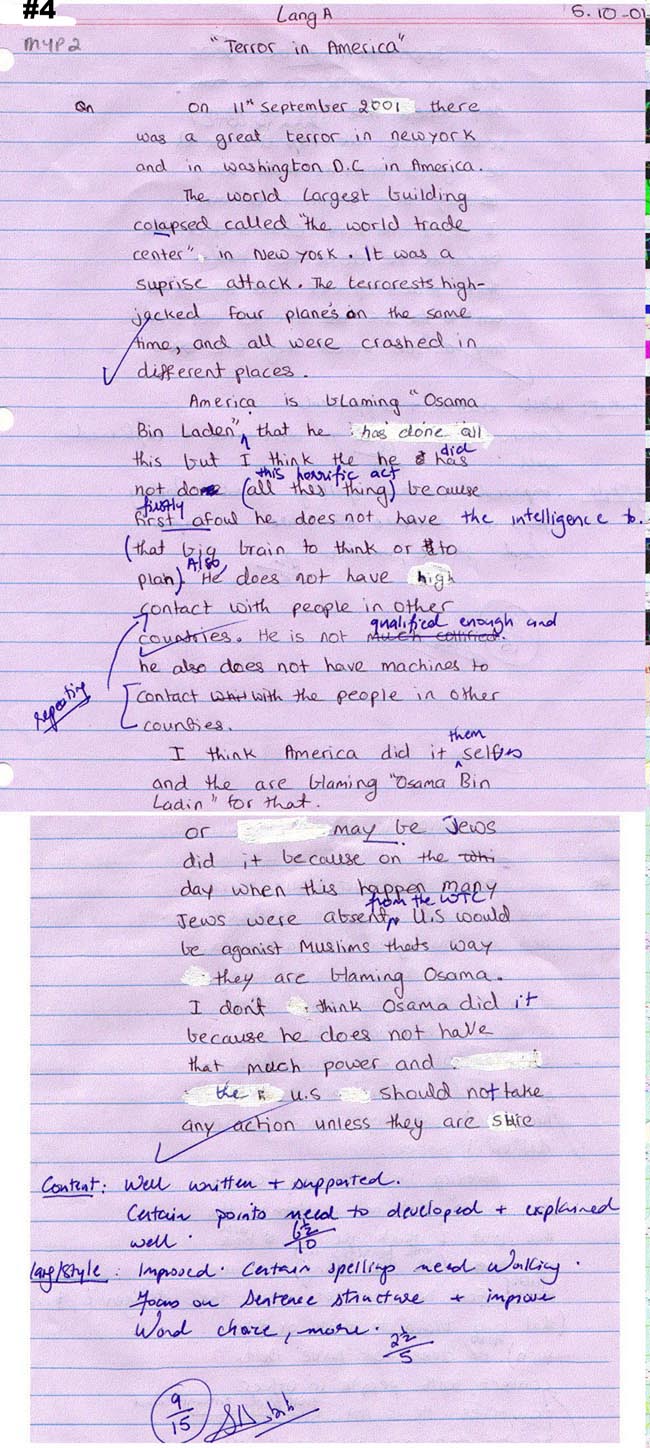 #4
Lang A
5.10-01
MYP2
"Terror in America"
On
On 11th September 2001 there
was a great terror in newyork
and in washington D.C in America.
The world Largest building
colapsed called "the world trade
center", in New York. It was a
suprise attack. The terrorests high-
jacked four plane's on the same
time, and all were crashed in
different places.
America is blaming "Osama
Bin Laden", that he has done all
did
this but I think the he has
this horrific act
not done (all thes thing) because
firstly
first afoul he does not have the intelligence to.
(that big brain to think or to
Also
plan). He does not have high
contact with people in other
qualified enough and
countries. He is not much
he also does not have machines to
repeating
contact with the people in other
counties.
them
I think America did it selfes
and the are blaming "Osama Bin
Ladin" for that.
or may be Jews
did it because on the
day when this happen many
from the WTC
Jews were absent, U.S would
be aganist Muslims thats way
they are blaming Osama.
I don't think Osama did it
because he does not have
that much power and
the u.s should not take
any action unless they are sure
Content: Well written + supported.
Certain points need to developed + explained
well.
6½/10
Lang/Style: Improved. Certain spellings need working.
Focus on sentence structure + improve
Word choice, more.
2½/5
9/15